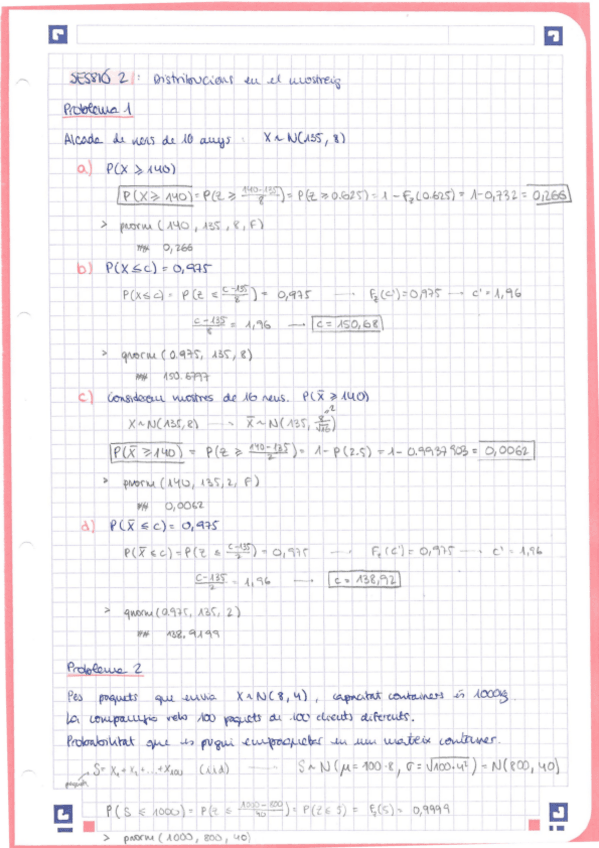 SESSIÓ 2: Distribucions en el mostreig
Problema 1
Alçada de nens de 10 anys: X ~ N(135, 8)
a) P(X ≥ 140)
P(X ≥ 140) = P(Z ≥ (140-135)/8) = P(Z ≥ 0.625) = 1 - Fz(0.625) = 1 - 0,732 = 0,266
> pnorm (140, 135, 8, F)
0,266
b) P(X ≤ c) = 0,975
P(X ≤ c) = P(Z ≤ (c-135)/8) = 0,975 → Fz(c') = 0,975 → c' = 1,96
(c-135)/8 = 1,96 → c = 150,68
> qnorm (0.975, 135, 8)
150.6797
c) Considerem mostres de 16 nens. P(X̄ ≥ 140)
X ~ N(135, 8) → X̄ ~ N(135, 8/√16) 2
P(X̄ ≥ 140) = P(Z ≥ (140-135)/2) = 1 - P(2.5) = 1 - 0.9937903 = 0,0062
> pnorm (140, 135, 2, F)
0,0062
d) P(X̄ ≤ c) = 0,975
P(X̄ ≤ c) = P(Z ≤ (c-135)/2) = 0,975 → Fz(c') = 0,975 → c' = 1,96
(c-135)/2 = 1,96 → c = 138,92
> qnorm (0.975, 135, 2)
138.9199
Problema 2
Pes paquets que envia X ~ N(8, 4), capacitat containers és 1000kg.
La companyia rebs 100 paquets de 100 clients diferents.
Probabilitat que es pugui empaquetar en un mateix container.
S = X₁ + X₂ + ... + X₁₀₀ (iid) → S ~ N(μ = 100·8, σ = √100·4²) = N(800, 40)
P(S ≤ 1000) = P(Z ≤ (1000-800)/40) = P(Z ≤ 5) = Fz(5) ≈ 0,9999
> pnorm (1000, 800, 40)